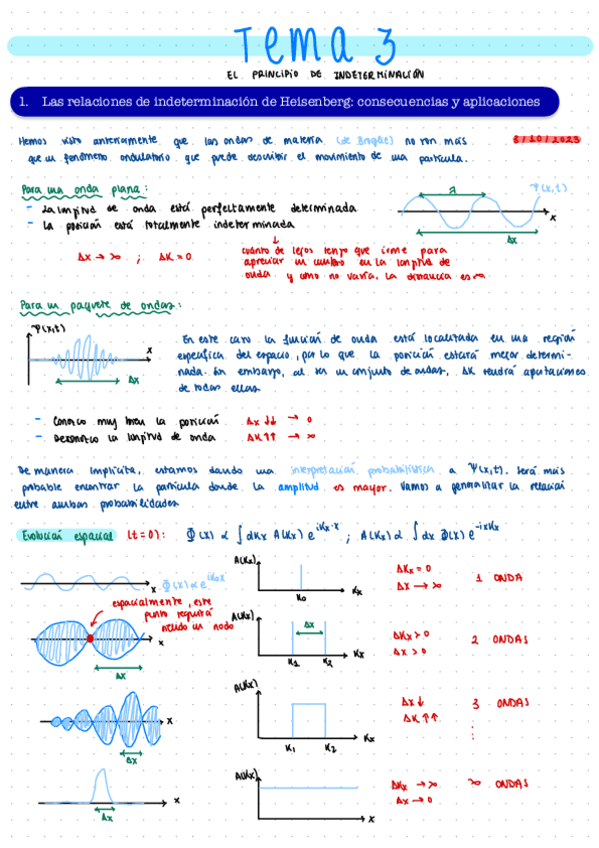 Tema 3
EL PRINCIPIO DE INDETERMINACIÓN
1. Las relaciones de indeterminación de Heisenberg: consecuencias y aplicaciones
Hemos visto anteriormente que las ondas de materia (de Broglie) no son más
3/10/2023
que un fenómeno ondulatorio que puede describir el movimiento de una partícula.
Para una onda plana:
- La longitud de onda está perfectamente determinada
- La posición está totalmente indeterminada
Δx → ∞ ; ΔK = 0
λ
Ψ(x,t)
x
Δx
cuánto de lejos tengo que irme para
apreciar un cambio en la longitud de
onda y como no varía, la distancia es ∞
Para un paquete de ondas:
Ψ(x,t)
x
Δx
En este caso la función de onda está localizada en una región
específica del espacio, por lo que la posición estará mejor determi-
nada. Sin embargo, al ser un conjunto de ondas, ΔK tendrá aportaciones
de todas ellas.
- Conozco muy bien la posición Δx ↓↓ → 0
- Desconozco la longitud de onda ΔK ↑↑ → ∞
De manera implícita, estamos dando una interpretación probabilística a Ψ(x,t). Será más
probable encontrar la partícula donde la amplitud es mayor. Vamos a generalizar la relación
entre ambas probabilidades
Evolución espacial (t=0): Φ(x) ∝ ∫ dKx A(Kx) e^{iKx·x} ; A(Kx) ∝ ∫ dx Φ(x) e^{-ixKx}
x Φ(x) ∝ e^{iK₀x}
A(Kx)
K₀
Kx
ΔKx = 0
Δx → ∞
1 ONDA
espacialmente, este
punto seguirá
siendo un nodo
x
Δx
A(Kx)
Δx
K₁ K₂ Kx
ΔKx > 0
Δx > 0
2 ONDAS
x
Δx
A(Kx)
K₁ K₂ Kx
Δx ↓
ΔK ↑↑
3 ONDAS
⋮
x
Δx
A(Kx)
x
ΔKx → ∞
Δx → 0
∞ ONDAS